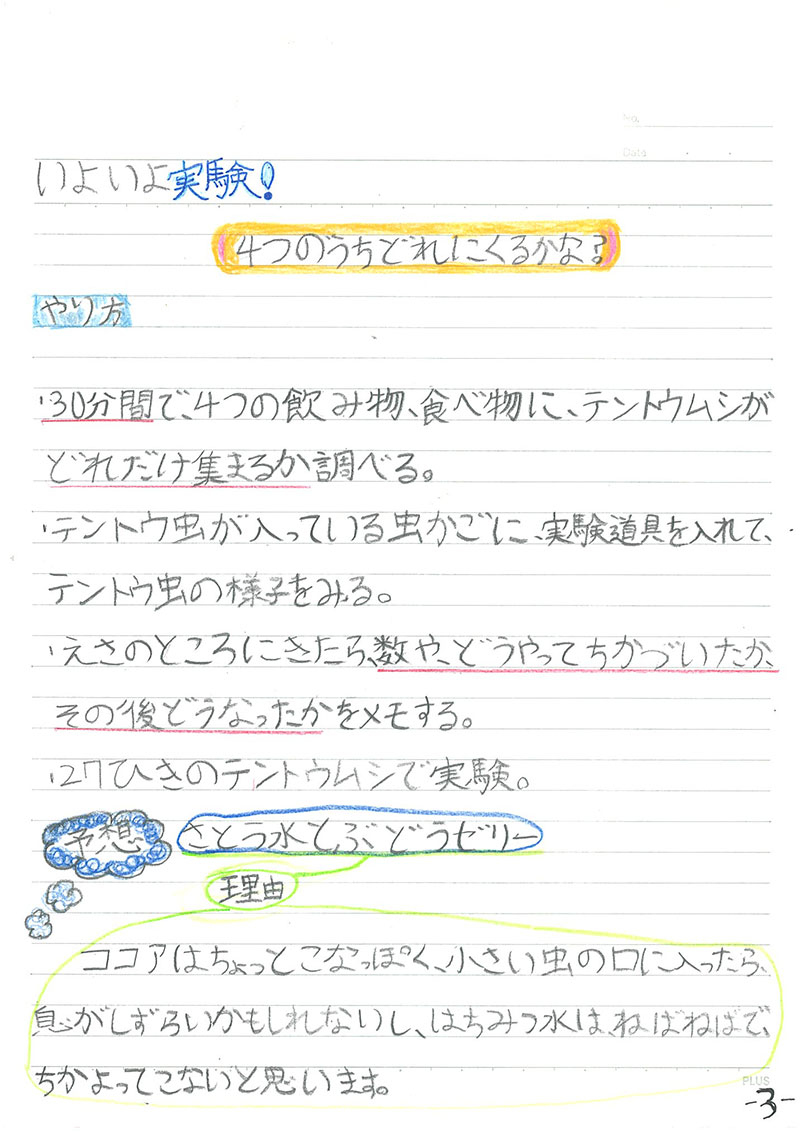 No.
Date
いよいよ実験!
4つのうちどれにくるかな?
やり方
・30分間で、4つの飲み物、食べ物に、テントウムシが
どれだけ集まるか調べる。
・テントウ虫が入っている虫かごに、実験道具を入れて、
テントウ虫の様子をみる。
・えさのところにきたら、数や、どうやってちかづいたか、
その後どうなったかをメモする。
・27ひきのテントウムシで実験。
予想 さとう水とぶどうゼリー
理由
ココアはちょっとこなっぽく、小さい虫の口に入ったら、
息がしずらいかもしれないし、はちみつ水は、ねばねばで、
ちかよってこないと思います。
PLUS
-3-